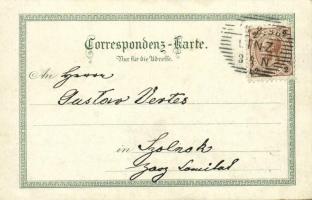 Correspondenz-Karte.
Nur für die Adresse.
LINZ
An Herrn
Gustav Vertes
in Szolnok